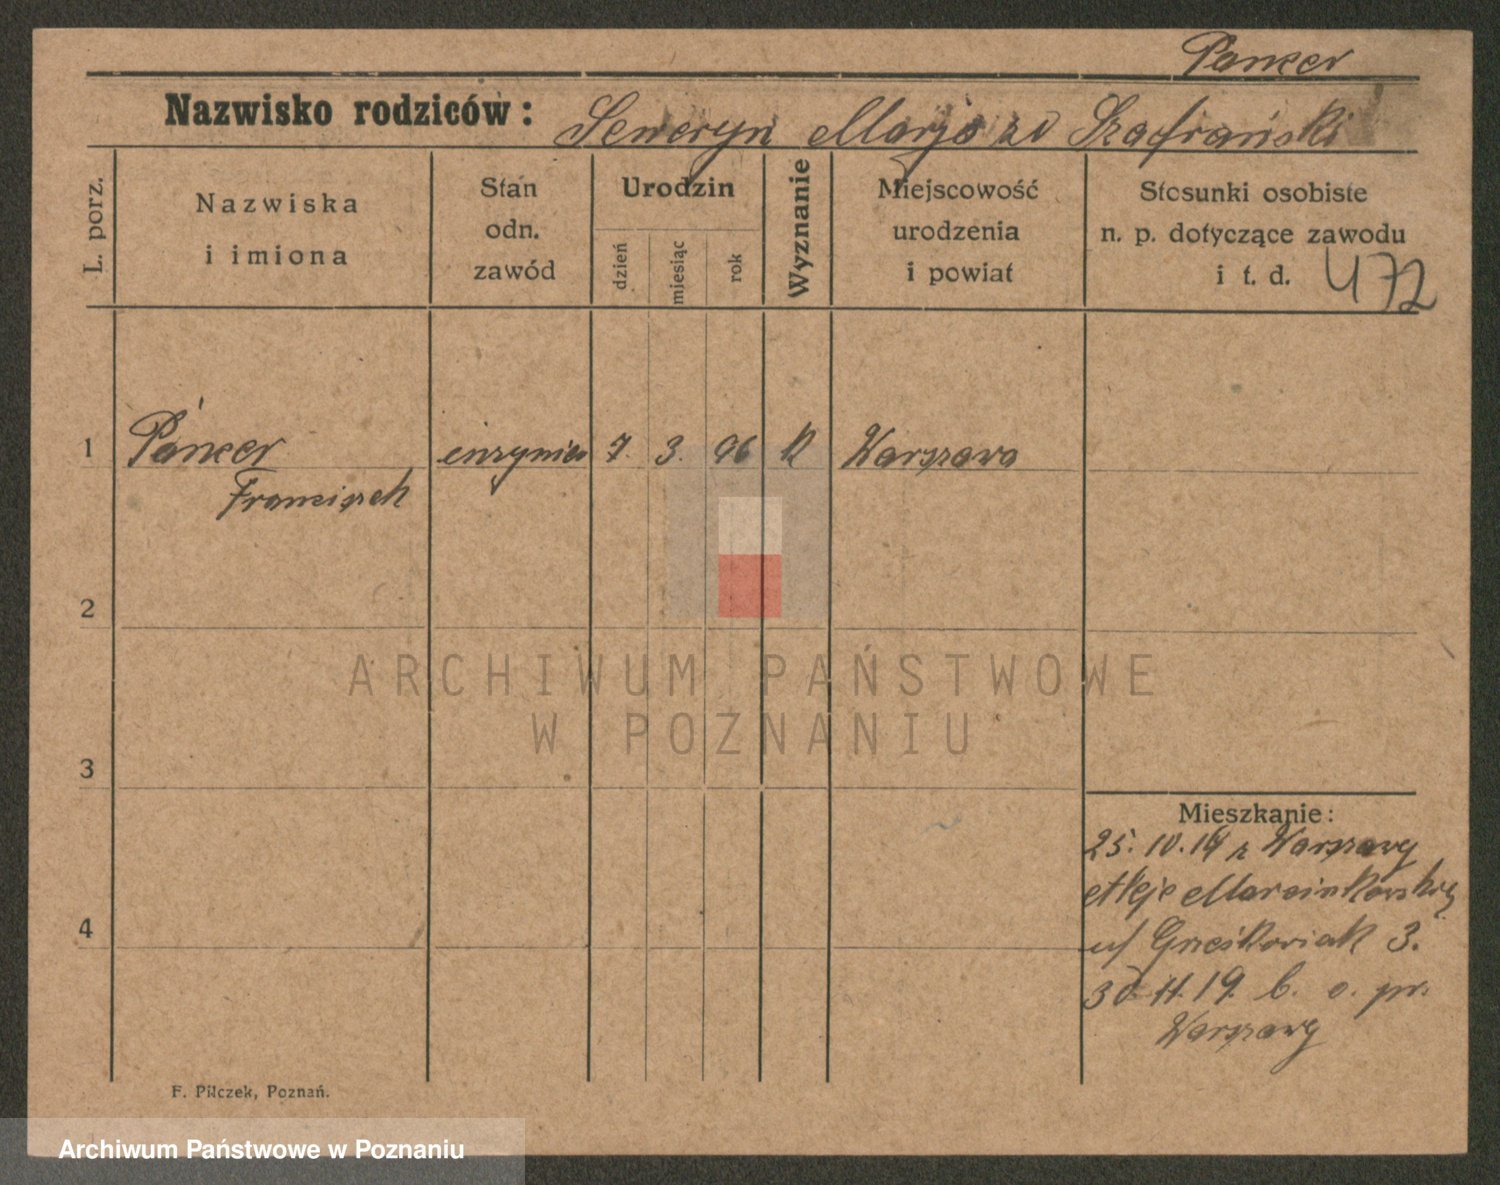 Pancer
Nazwisko rodziców: Seweryn Marja zd Szafrański
L. porz.
Nazwiska
i imiona
Stan
odn.
zawód
Urodzin
dzień
miesiąc
rok
Wyznanie
Miejscowość
urodzenia
i powiat
Stosunki osobiste
n. p. dotyczące zawodu
i t. d. 472
1 Pancer inżynier 7. 3. 96 K Warszawa
Franciszek
2
ARCHIWUM PAŃSTWOWE
W POZNANIU
3
Mieszkanie:
25. 10. 19 z Warszawy
Marcinkowskiego
4
u/ Grześkowiak 3.
30 11. 19. b. o. pr.
Warszawy
F. Pilczek, Poznań.
Archiwum Państwowe w Poznaniu